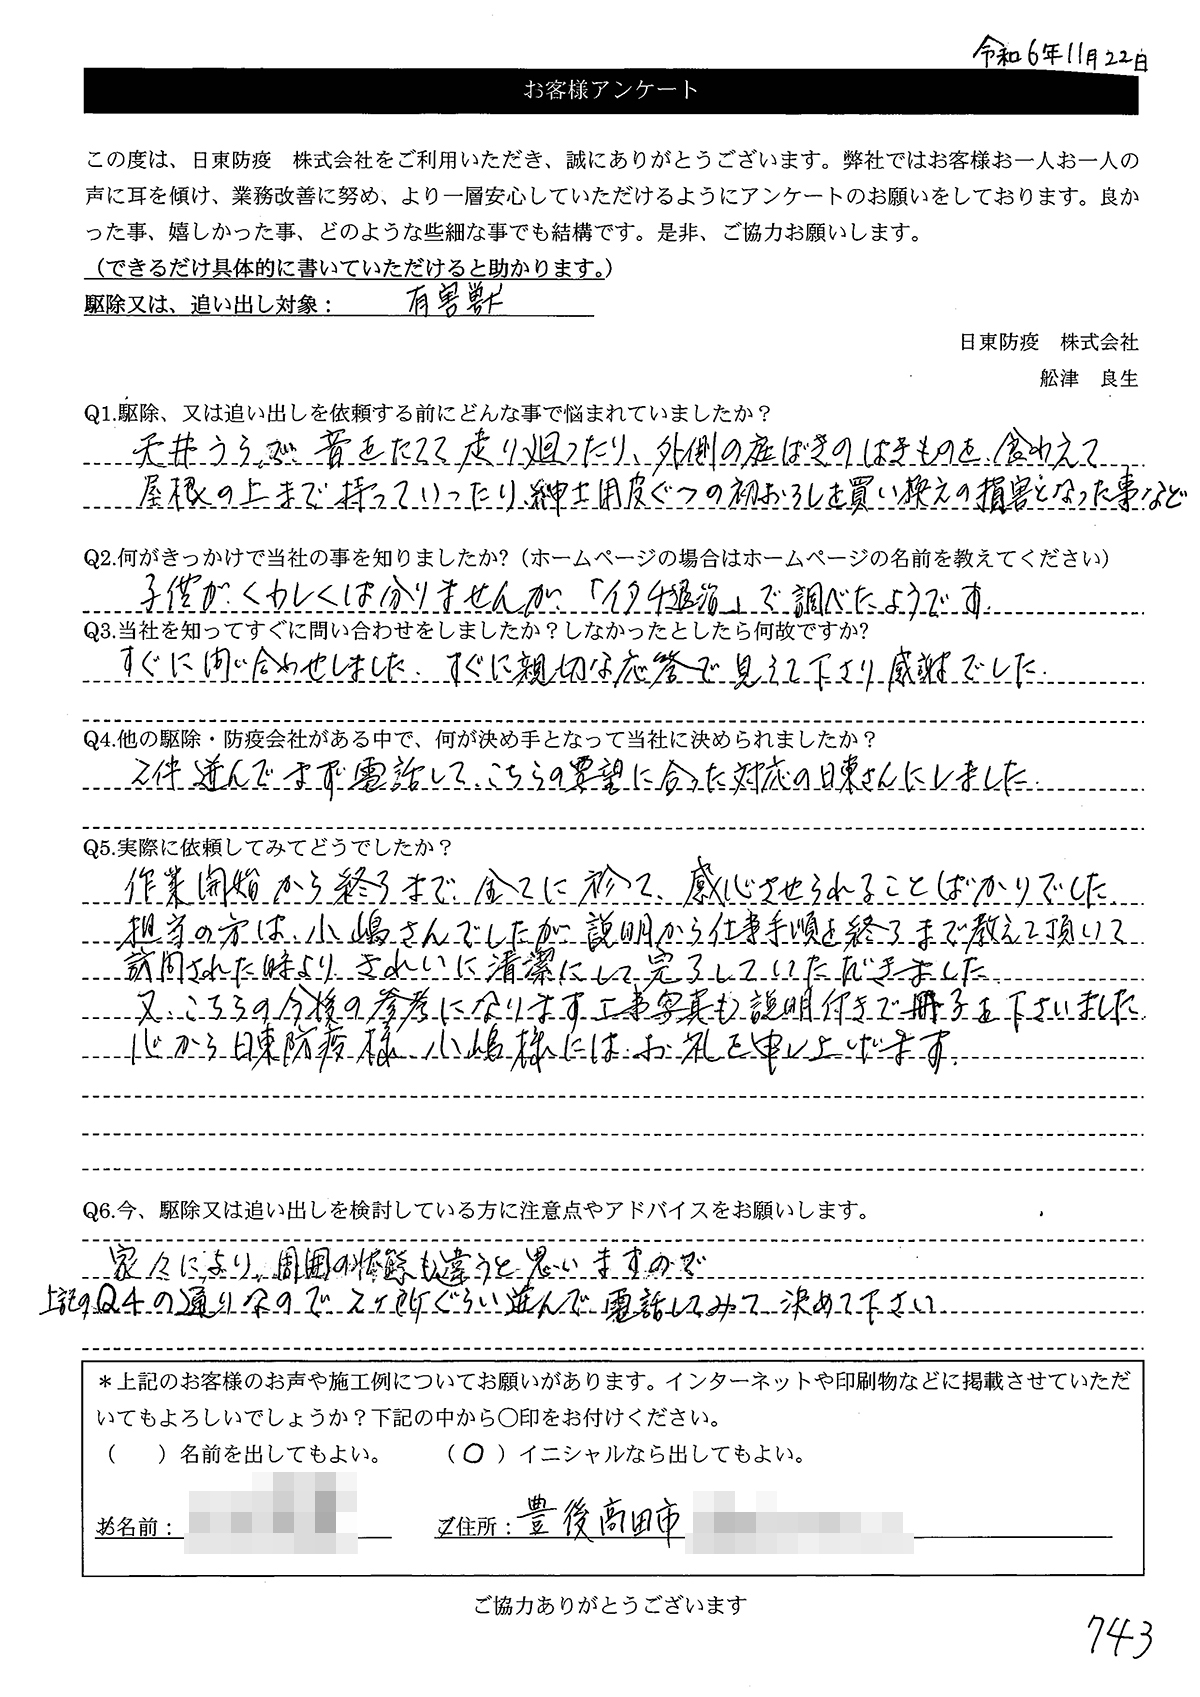 令和6年11月22日
お客様アンケート
この度は、日東防疫　株式会社をご利用いただき、誠にありがとうございます。弊社ではお客様お一人お一人の
声に耳を傾け、業務改善に努め、より一層安心していただけるようにアンケートのお願いをしております。良か
った事、嬉しかった事、どのような些細な事でも結構です。是非、ご協力お願いします。
（できるだけ具体的に書いていただけると助かります。）
駆除又は、追い出し対象：　有害獣
日東防疫　株式会社
舩津　良生
Q1.駆除、又は追い出しを依頼する前にどんな事で悩まれていましたか？
天井うらで、音をたてて走り廻ったり、外側の庭ばきのはきものを、含わえて
屋根の上まで持っていったり、紳士用皮ぐつの初おろしを買い換えの損害となった事など
Q2.何がきっかけで当社の事を知りましたか?（ホームページの場合はホームページの名前を教えてください）
子供が、くわしくは分りませんが、「イタチ退治」で調べたようです
Q3.当社を知ってすぐに問い合わせをしましたか？しなかったとしたら何故ですか?
すぐに問い合わせしました、すぐに親切な応答で見えて下さり感謝でした
Q4.他の駆除・防疫会社がある中で、何が決め手となって当社に決められましたか？
2件選んでまず電話して、こちらの要望に合った対応の日東さんにしました
Q5.実際に依頼してみてどうでしたか？
作業開始から終るまで、全てに於て、感心させられることばかりでした
担当の方は、小嶋さんでしたが、説明から仕事手順を終るまで教えて頂いて
訪問された時より、きれいに清潔にして完了していただきました
又、こちらの今後の参考になります工事写真も説明付きで冊子を下さいました
心から日東防疫様、小嶋様には、お礼を申し上げます。
Q6.今、駆除又は追い出しを検討している方に注意点やアドバイスをお願いします。
家々により、周囲の状態も違うと思いますので
上記のQ4の通りなので2ヶ所ぐらい選んで電話してみて決めて下さい
＊上記のお客様のお声や施工例についてお願いがあります。インターネットや印刷物などに掲載させていただ
いてもよろしいでしょうか？下記の中から〇印をお付けください。
（　　）名前を出してもよい。　　（〇）イニシャルなら出してもよい。
お名前：　ご住所：豊後高田市
ご協力ありがとうございます
743